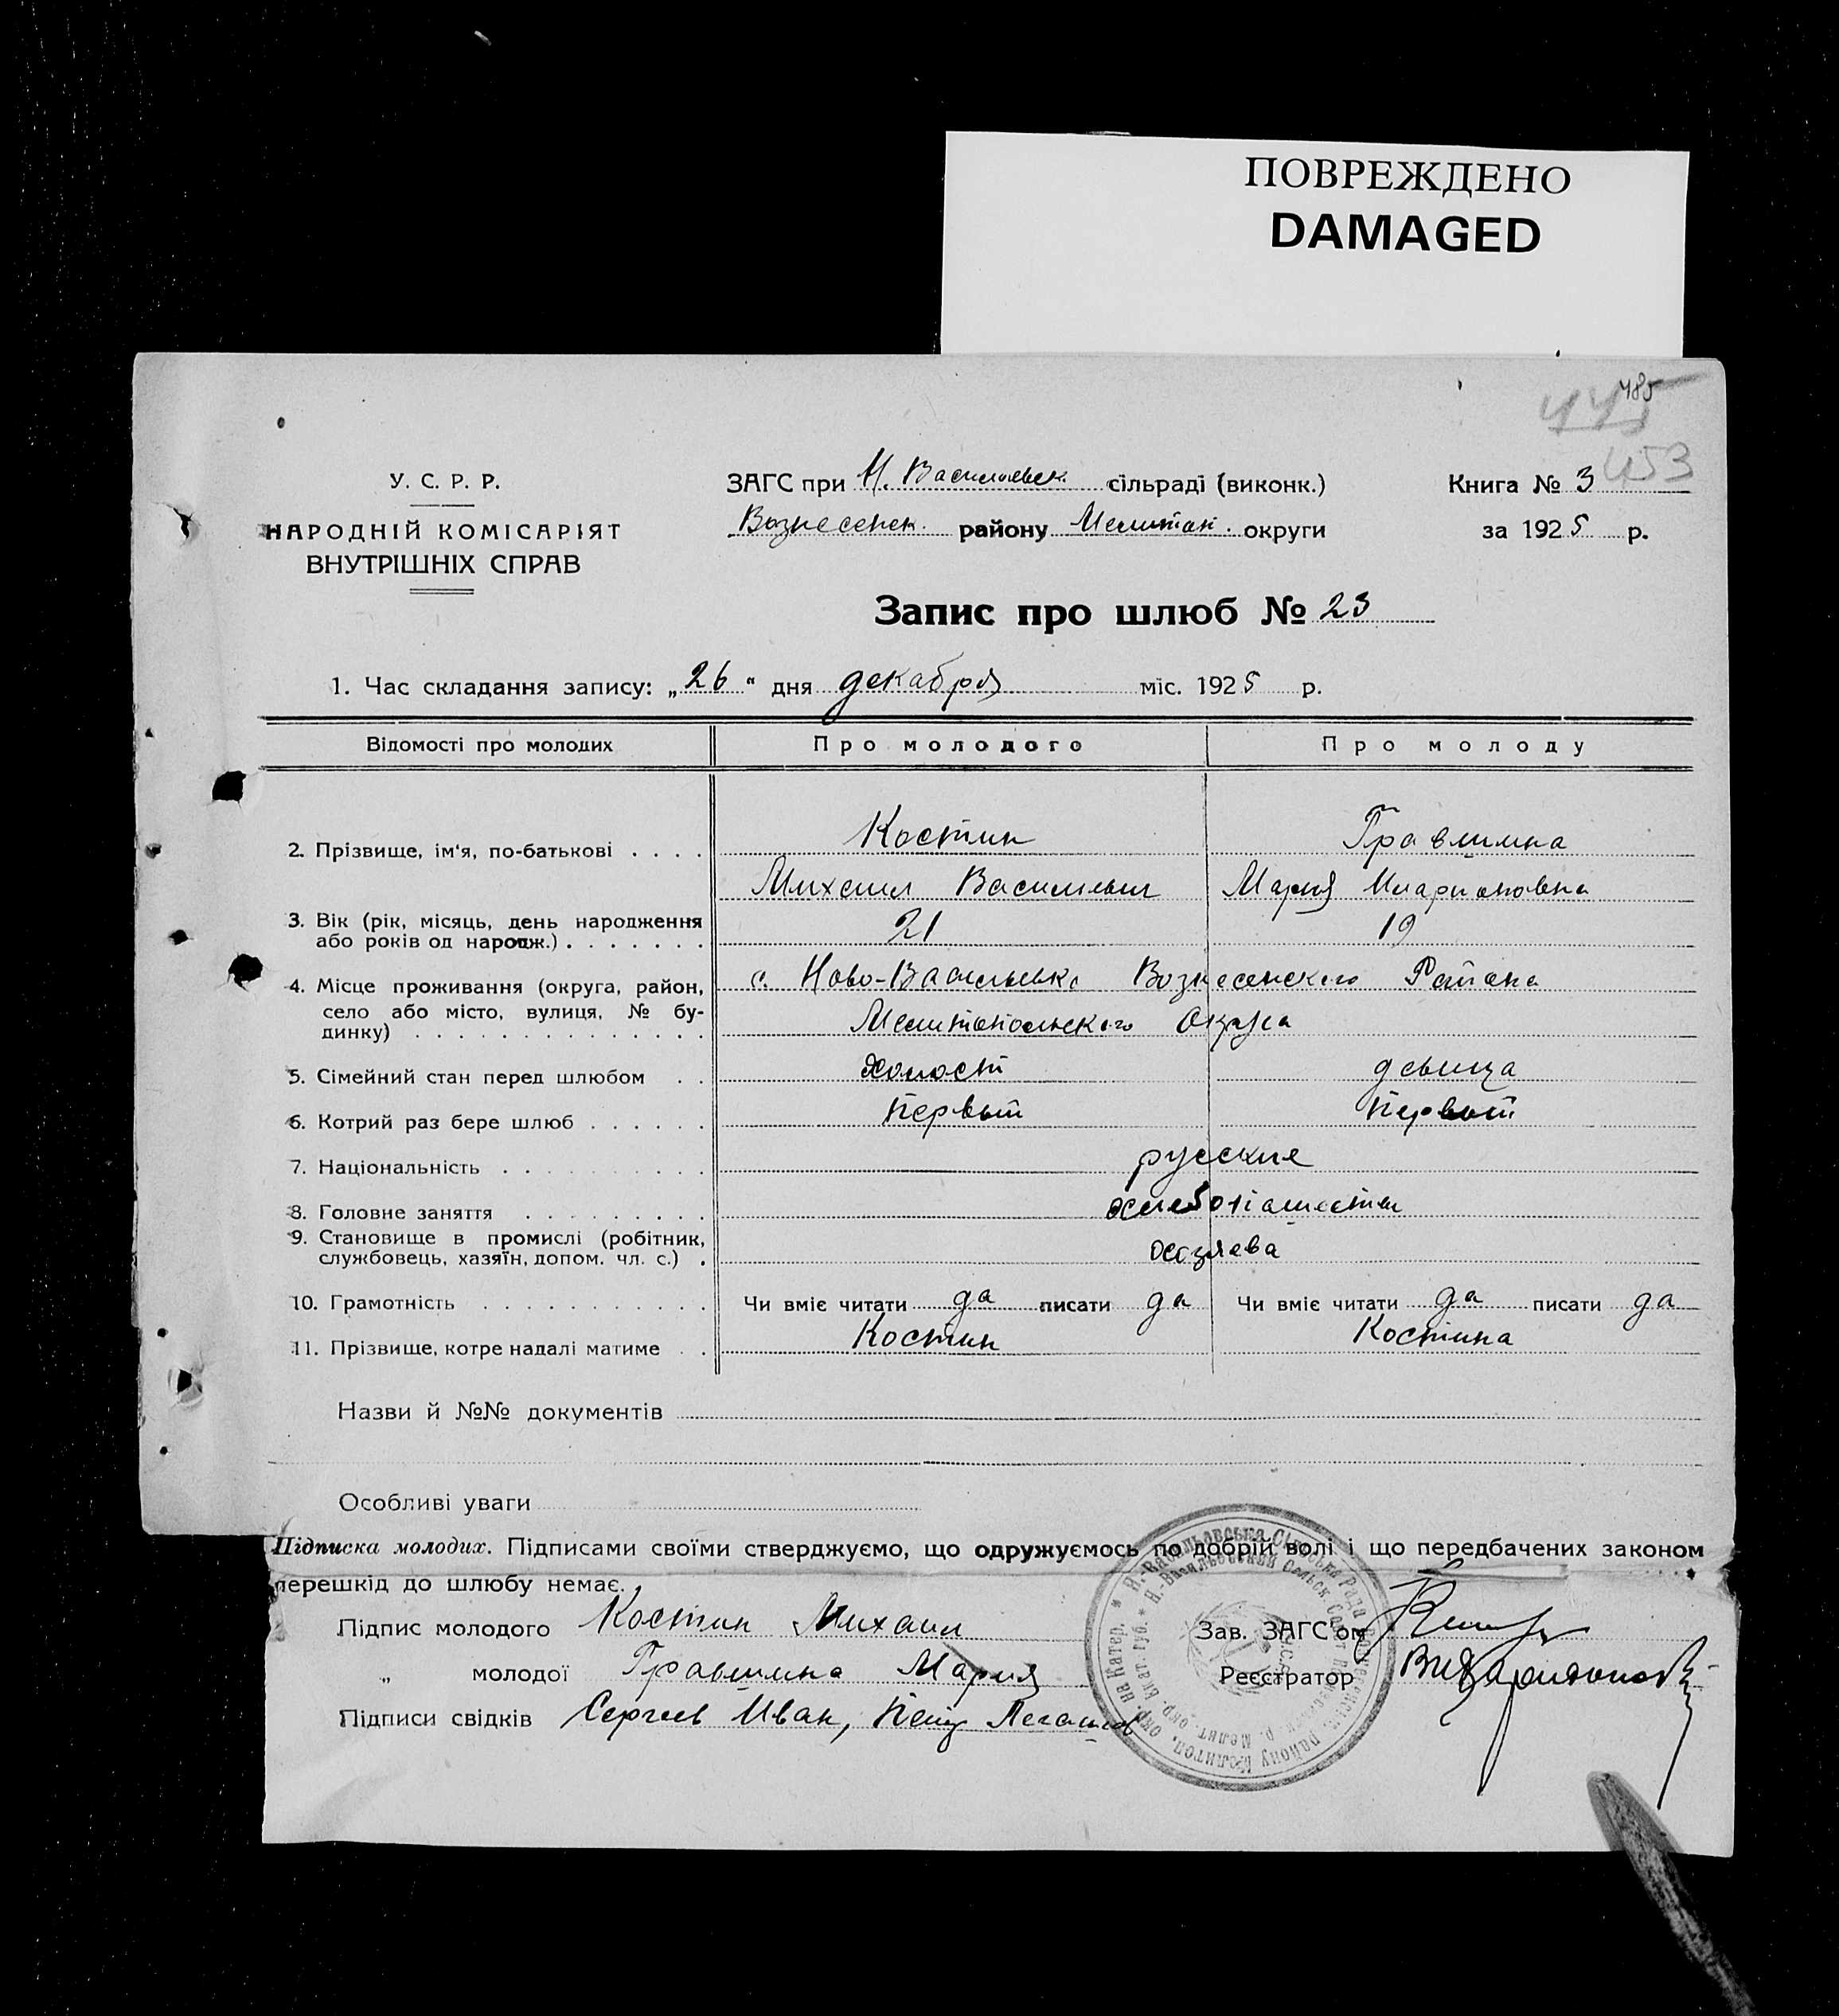 ПОВРЕЖДЕНО
DAMAGED
485
445
453
У. С. Р. Р.
НАРОДНІЙ КОМІСАРІЯТ
ВНУТРІШНІХ СПРАВ
ЗАГС при Н. Васильевск. сільраді (виконк.)
Вознесенск. району Мелитоп. округи
Книга № 3
за 1925 р.
Запис про шлюб № 23
1. Час складання запису: „26“ дня декабря міс. 1925 р.
Відомості про молодих Про молодого Про молоду
2. Прізвище, ім'я, по-батькові . . . . Костин Гравлина
Михаил Васильевич Мария Иларионовна
3. Вік (рік, місяць, день народження
або років од народж.) . . . . . . . 21 19
4. Місце проживання (округа, район,
село або місто, вулиця, № бу-
динку) . . . . . . . . . . . . . .
с. Ново-Васильевка Вознесенского Района
Мелитопольского Округа
5. Сімейний стан перед шлюбом . . холост девица
6. Котрий раз бере шлюб . . . . . . Первый Первый
7. Національність . . . . . . . . . . русские
8. Головне заняття . . . . . . . . . хлебопашество
9. Становище в промислі (робітник,
службовець, хазяїн, допом. чл. с.) . хозяева
10. Грамотність . . . . . . . . . . . Чи вміє читати да писати да Чи вміє читати да писати да
11. Прізвище, котре надалі матиме . . Костин Костина
Назви й №№ документів
Особливі уваги
Підписка молодих. Підписами своїми стверджуємо, що одружуємось по добрій волі і що передбачених законом
перешкід до шлюбу немає.
Підпис молодого Костин Михаил
„ молодої Гравлина Мария
Підписи свідків Сергеев Иван, Петр
Зав. ЗАГС'ом
Реєстратор